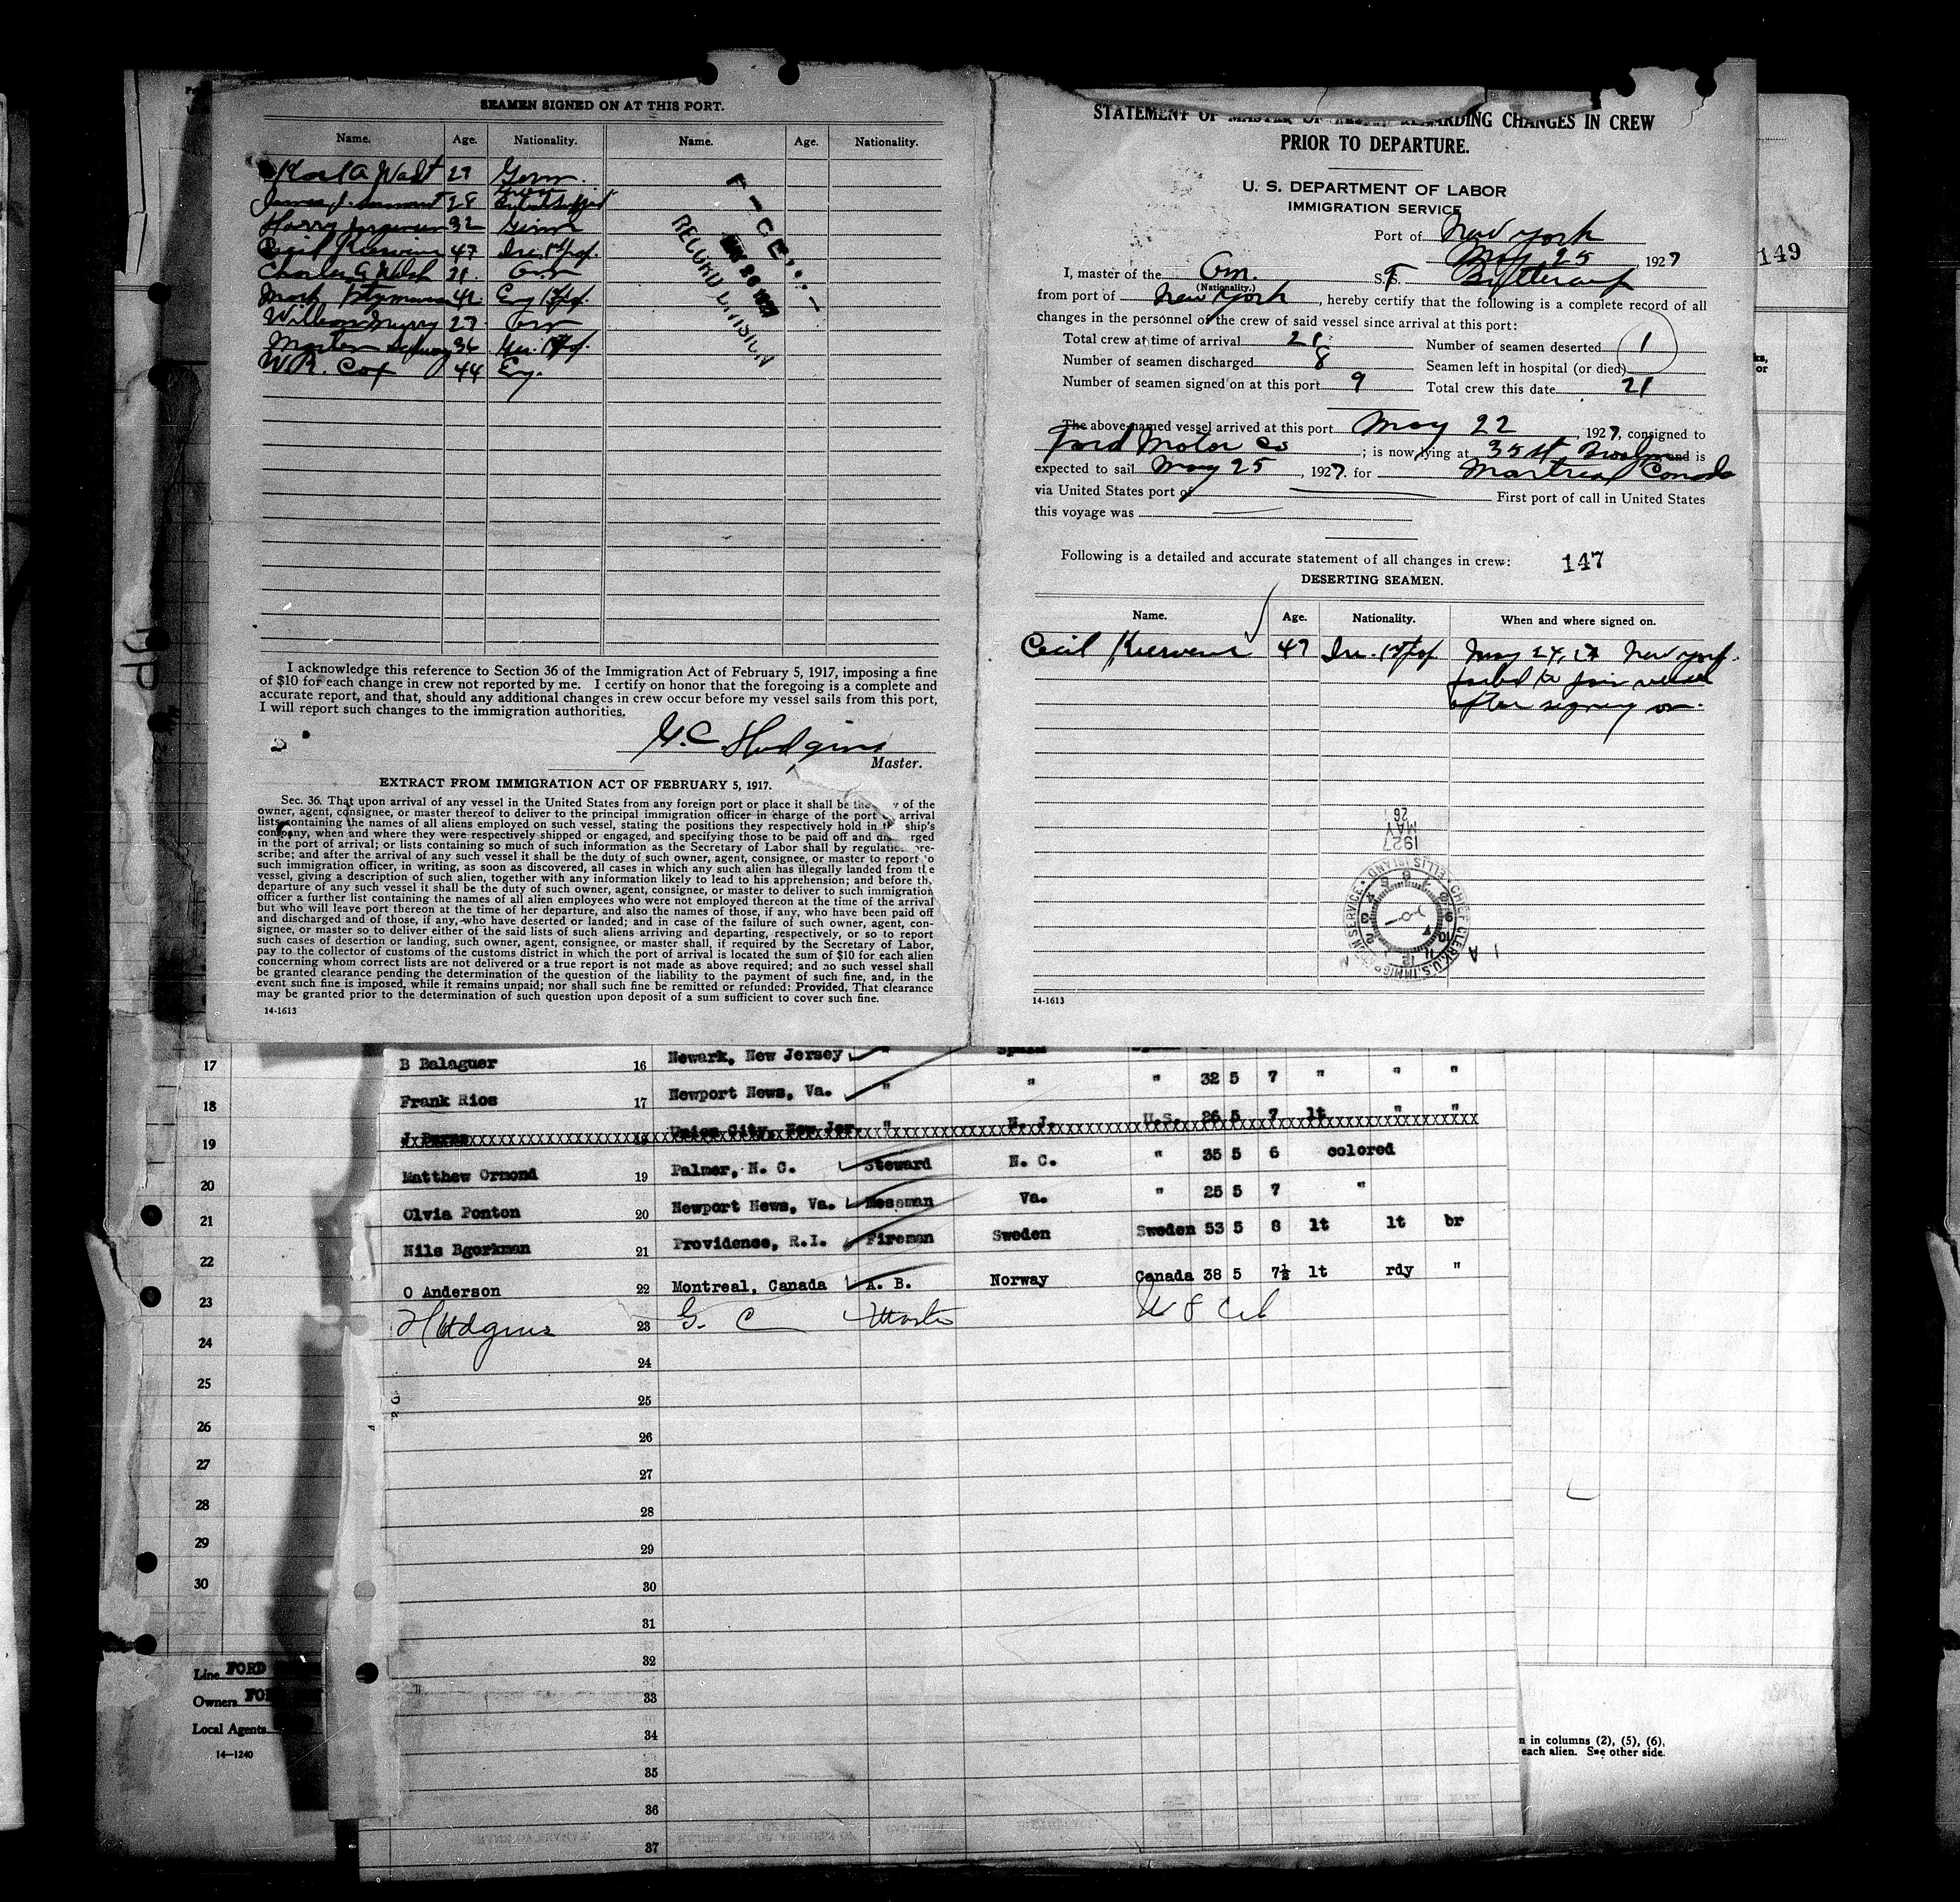 SEAMEN SIGNED ON AT THIS PORT.
Name. Age. Nationality. Name. Age. Nationality.
Karl A Walt 27 Germ.
James J. 28 British Subject
Harry Jorgensen 32 Germ
Cecil 47 Ire. 1st pp.
Charles A Welsh 21. Am
Mark 42 Eng 1st pp.
William Murry 27 Am
36 1st pp.
W.R. Cox 44 Eng.
RECORD DIVISION
I acknowledge this reference to Section 36 of the Immigration Act of February 5, 1917, imposing a fine
of $10 for each change in crew not reported by me. I certify on honor that the foregoing is a complete and
accurate report, and that, should any additional changes in crew occur before my vessel sails from this port,
I will report such changes to the immigration authorities.
G.C. Hudgins
Master.
EXTRACT FROM IMMIGRATION ACT OF FEBRUARY 5, 1917.
Sec. 36. That upon arrival of any vessel in the United States from any foreign port or place it shall be the y of the
owner, agent, consignee, or master thereof to deliver to the principal immigration officer in charge of the port arrival
lists containing the names of all aliens employed on such vessel, stating the positions they respectively hold in ship's
company, when and where they were respectively shipped or engaged, and specifying those to be paid off and di rged
in the port of arrival; or lists containing so much of such information as the Secretary of Labor shall by regulation pre-
scribe; and after the arrival of any such vessel it shall be the duty of such owner, agent, consignee, or master to report to
such immigration officer, in writing, as soon as discovered, all cases in which any such alien has illegally landed from the
vessel, giving a description of such alien, together with any information likely to lead to his apprehension; and before th
departure of any such vessel it shall be the duty of such owner, agent, consignee, or master to deliver to such immigration
officer a further list containing the names of all alien employees who were not employed thereon at the time of the arrival
but who will leave port thereon at the time of her departure, and also the names of those, if any, who have been paid off
and discharged and of those, if any, who have deserted or landed; and in case of the failure of such owner, agent, con-
signee, or master so to deliver either of the said lists of such aliens arriving and departing, respectively, or so to report
such cases of desertion or landing, such owner, agent, consignee, or master shall, if required by the Secretary of Labor,
pay to the collector of customs of the customs district in which the port of arrival is located the sum of $10 for each alien
concerning whom correct lists are not delivered or a true report is not made as above required; and no such vessel shall
be granted clearance pending the determination of the question of the liability to the payment of such fine, and, in the
event such fine is imposed, while it remains unpaid; nor shall such fine be remitted or refunded: Provided, That clearance
may be granted prior to the determination of such question upon deposit of a sum sufficient to cover such fine.
14-1613
STATEMENT OF MASTER OF VESSEL REGARDING CHANGES IN CREW
PRIOR TO DEPARTURE.
U. S. DEPARTMENT OF LABOR
IMMIGRATION SERVICE
Port of New York
May 25, 1927
I, master of the Am. S.S. Buttercup
(Nationality.)
from port of New York, hereby certify that the following is a complete record of all
changes in the personnel of the crew of said vessel since arrival at this port:
Total crew at time of arrival 21 Number of seamen deserted 1
Number of seamen discharged 8 Seamen left in hospital (or died)
Number of seamen signed on at this port 9 Total crew this date 21
The above-named vessel arrived at this port May 22, 1927, consigned to
Ford Motor Co; is now lying at 35 St. Brooklyn and is
expected to sail May 25, 1927. for Montreal Canada
via United States port of First port of call in United States
this voyage was
Following is a detailed and accurate statement of all changes in crew: 147
DESERTING SEAMEN.
Name. Age. Nationality. When and where signed on.
Cecil 47 Ire. 1st pp May 24, 27 New York.
failed to join vessel
after signing on.
1927
MAY
26
CHIEF CLERK, U.S. IMMIGRATION SERVICE ELLIS ISLAND
14-1613
149
17 B Balaguer 16 Newark, New Jersey " Spain
18 Frank Rios 17 Newport News, Va. " " " 32 5 7 " " "
19 J Burns 18 Union City, New Jer. " N. J. U.S. 26 5 7 lt " "
Matthew Ormond 19 Palmer, N. C. Steward N. C. " 35 5 6 colored
20 Olvia Ponton 20 Newport News, Va. Messman Va. " 25 5 7 "
21 Nils Bgorkman 21 Providence, R.I. Fireman Sweden Sweden 53 5 8 lt lt br
22 O Anderson 22 Montreal, Canada A. B. Norway Canada 38 5 7½ lt rdy "
23 Hudgins 23 G. C Master U S Cit
24 24
25 25
26 26
27 27
28 28
29 29
30 30
31
32
33
34
35
36
37
Line FORD
Owners FO
Local Agents
14—1240
n in columns (2), (5), (6),
each alien. See other side.